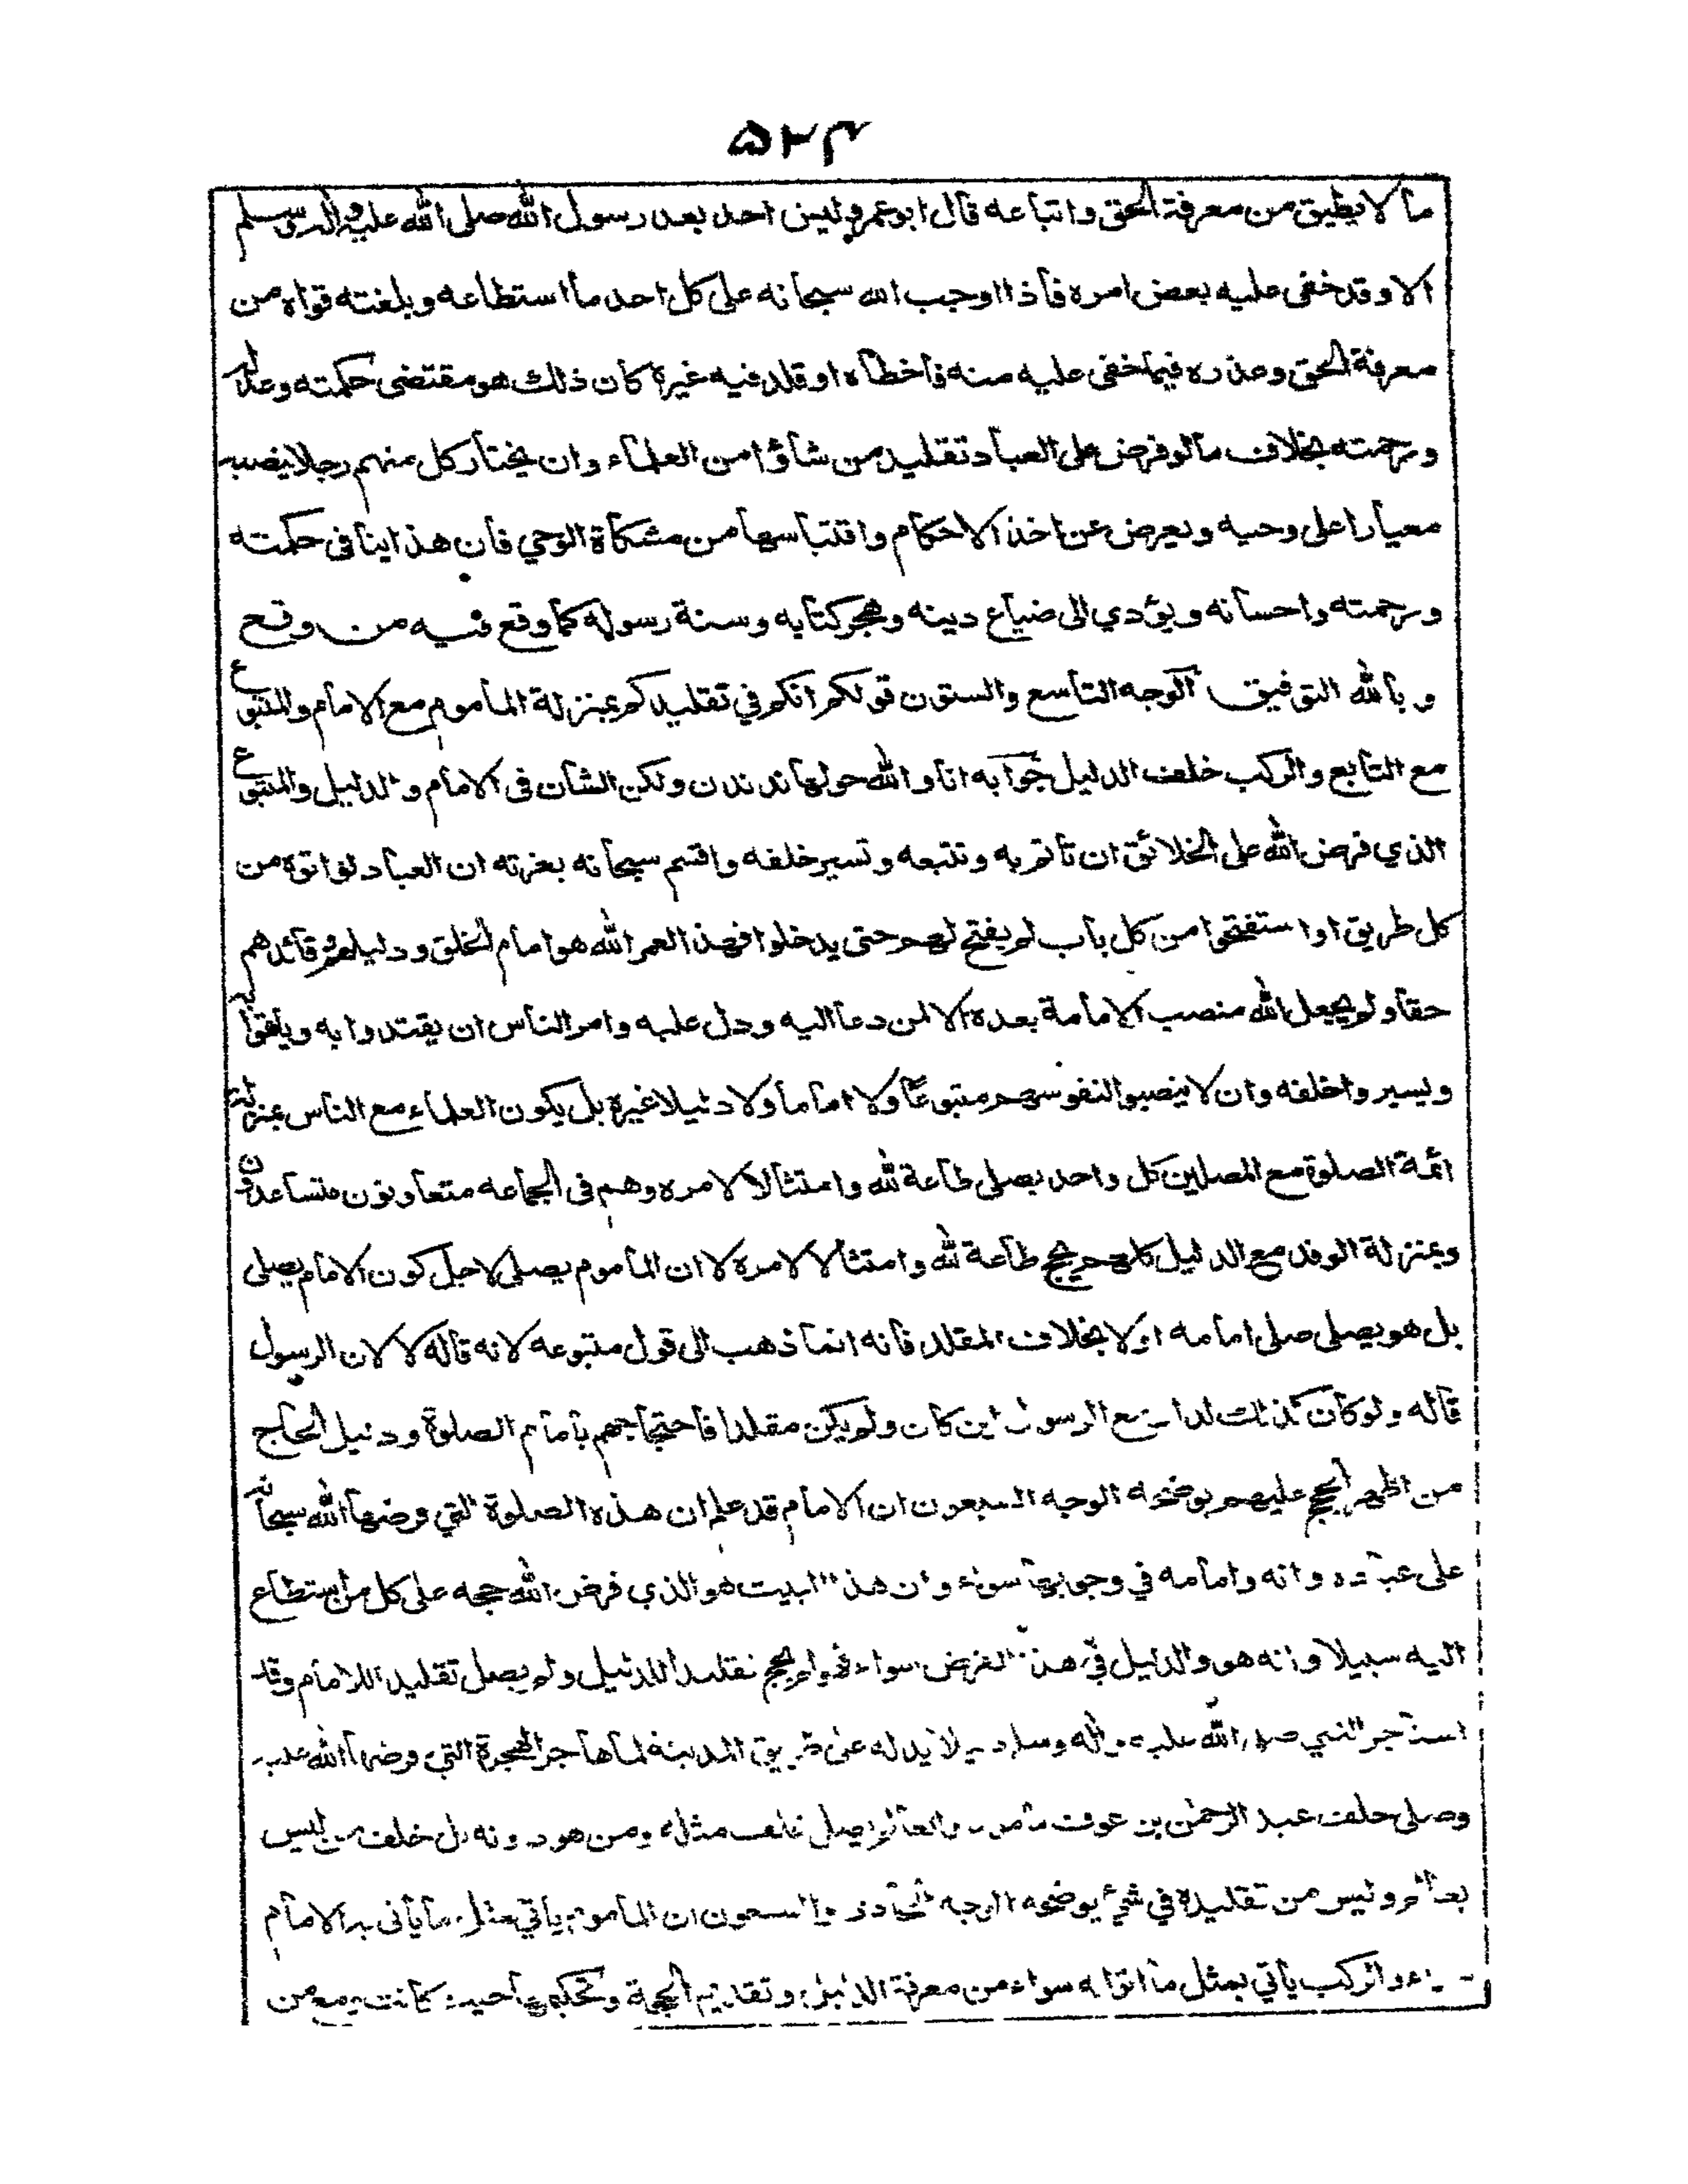 ۵۲۴
ما لا يطيق من معرفة الحق واتباعه قال ابو عمر وليس احد بعد رسول الله صلى الله عليه واله وسلم
الا وقد خفى عليه بعض امره فاذا اوجب الله سبحانه على كل احد ما استطاعه وبلغته قواه من
معرفة الحق وعذره فيما خفى عليه منه فاخطأه او قلد فيه غيره كان ذلك هو مقتضى حكمته وعدله
ورحمته بخلاف ما لو فرض على العباد تقليد من شاؤا من العلماء وان يختار كل منهم رجلا ينصبه
معيارا على وحيه ويعرض عن اخذ الاحكام واقتباسها من مشكاة الوحي فان هذا ينافى حكمته
ورحمته واحسانه ويؤدي الى ضياع دينه وهجر كتابه وسنة رسوله كما وقع فيه من وقع
وبالله التوفيق الوجه التاسع والستون قولكم انكم في تقليدكم بمنزلة المأموم مع الامام والمتبوع
مع التابع والركب خلف الدليل جوابه انا والله حولها ندندن ولكن الشان فى الامام والدليل والمتبوع
الذي فرض الله على الخلائق ان تأتم به وتتبعه وتسير خلفه واقسم سبحانه بعزته ان العباد لو اتوه من
كل طريق او استفتحوا من كل باب لم يفتح لهم حتى يدخلوا فهذا لعمر الله هو امام الخلق ودليلهم وقائدهم
حقا ولم يجعل الله منصب الامامة بعده الا لمن دعا اليه ودل عليه وامر الناس ان يقتدوا به ويأتموا به
ويسيروا خلفه وان لا ينصبوا لنفوسهم متبوعا ولا اماما ولا دليلا غيره بل يكون العلماء مع الناس بمنزلة
ائمة الصلوة مع المصلين كل واحد يصلى طاعة لله وامتثالا لامره وهم فى الجماعه متعاونون متساعدون
وبمنزلة الوفد مع الدليل كلهم يحج طاعة لله وامتثالا لامره لا ان المأموم يصلى لاجل كون الامام يصلى
بل هو يصلى صلى امامه اولا بخلاف المقلد فانه انما ذهب الى قول متبوعه لانه قاله لا لان الرسول
قاله ولو كان كذلك لدار مع الرسول اين كان ولم يكن مقلدا فاحتجاجهم بامام الصلوة ودليل الحاج
من اظهر الحجج عليهم يوضحه الوجه السبعون ان الامام قد علم ان هذه الصلوة التي فرضها الله سبحانه
على عباده وانه وامامه في وجوبها سواء وان هذا البيت هو الذي فرض الله حجه على كل من استطاع
اليه سبيلا وانه هو والدليل في هذا الفرض سواء فهو لم يحج تقليدا للدليل ولم يصل تقليدا للامام وقد
استأجر النبي صلى الله عليه واله وسلم دليلا يدله على طريق المدينة لما هاجر الهجرة التي فرضها الله عليه
وصلى خلف عبد الرحمن بن عوف مأموما والعالم يصلى خلف مثله ومن هو دونه بل خلف من ليس
بعالم وليس من تقليده في شيء يوضحه الوجه الحادي والسبعون ان المأموم يأتي بمثل ما يأتى به الامام
سواء والركب يأتي بمثل ما اتوا به سواء من معرفة الدليل وتقديم الحجة وتحكيمها حيث كانت ومع من